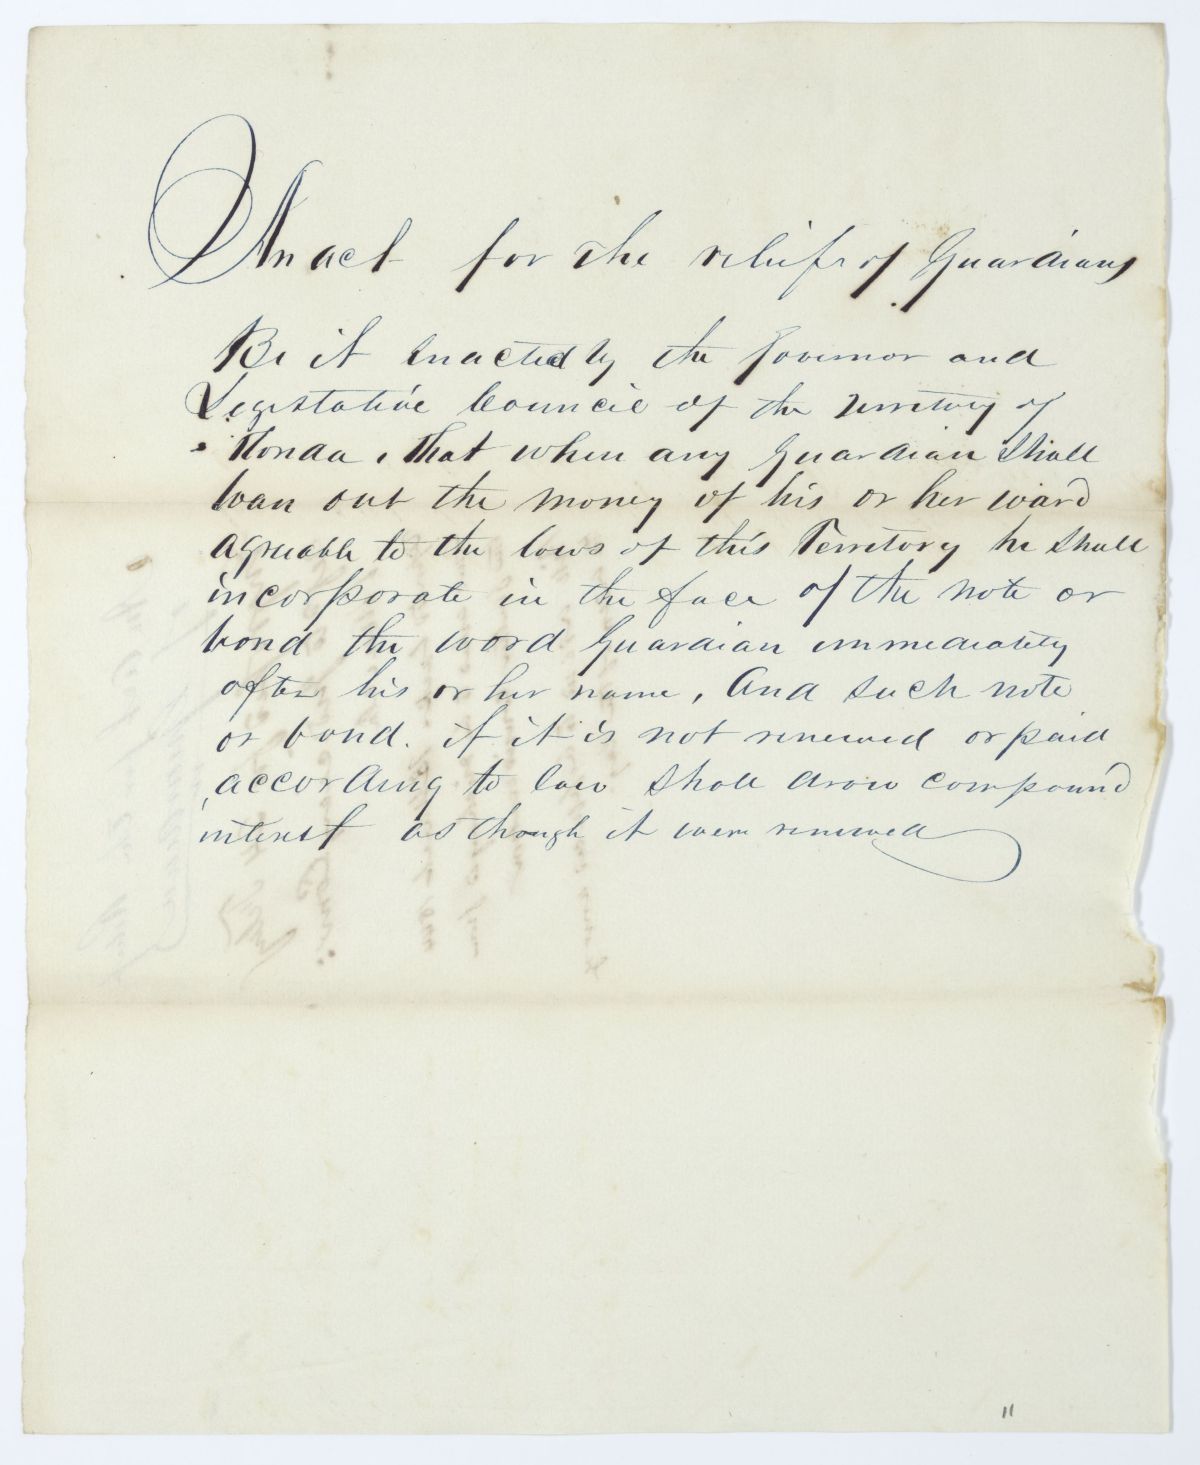 An act for the relief of Guardians
Be it enacted by the Governor and
Legislative Council of the Territory of
Florida, that when any Guardian Shall
loan out the money of his or her ward
agreeable to the laws of this Territory he shall
incorporate in the face of the note or
bond the word Guardian immediately
after his or her name, And such note
or bond. if it is not renewed or paid
according to law shall draw compound
interest as though it were renewed
11